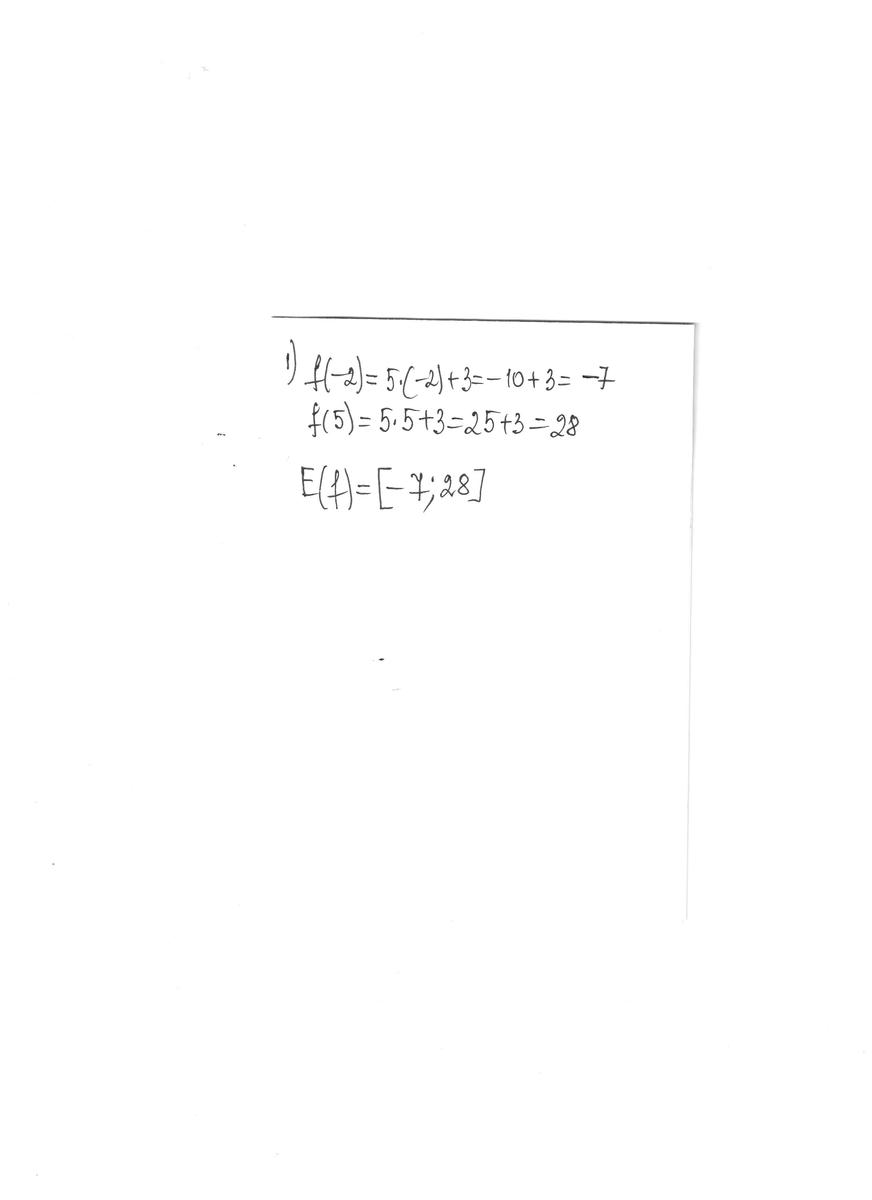 1) f(-2)=5·(-2)+3=-10+3=-7
f(5)=5·5+3=25+3=28
E(f)=[-7;28]